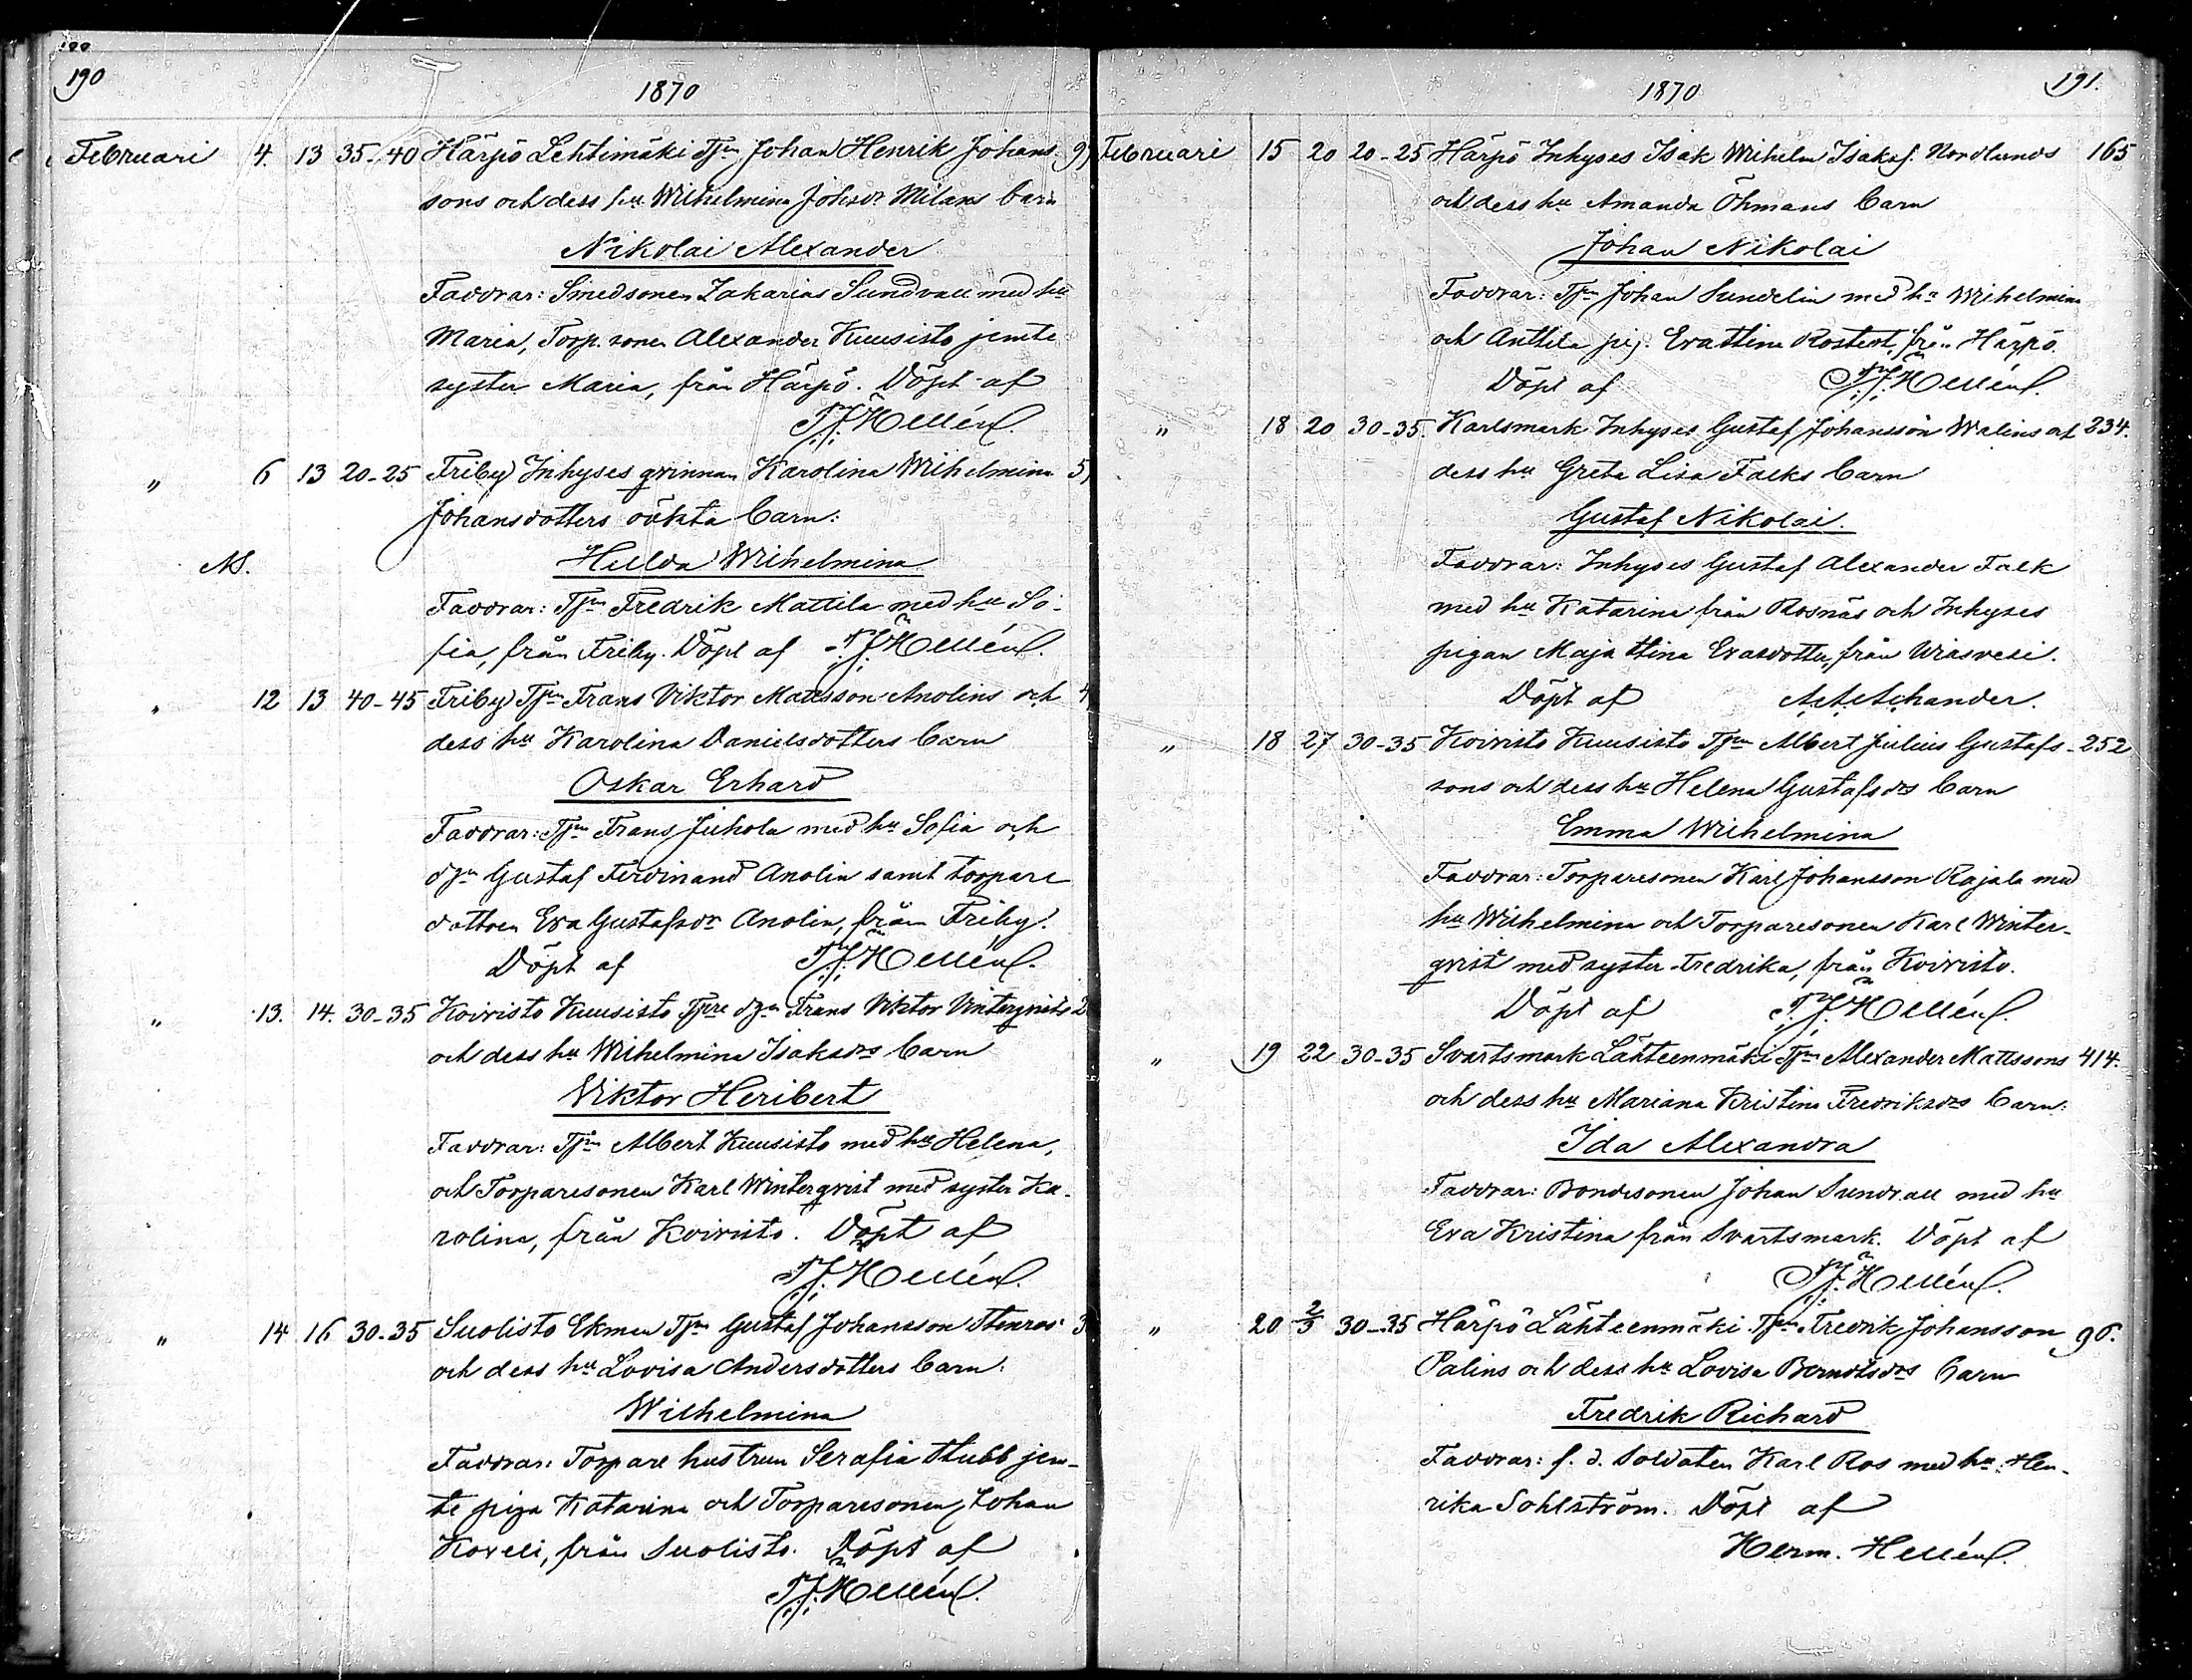 190
1870
Februari 4. 13 35-40 Härpö Lehtimäki Tjm Johan Henrik Johans- 9
sons och dess hu Wilhelmina Johsdr Milans barn
Nikolai Alexander
Faddrar: Smedsonen Zakarias Sundvall med hu
Maria, Torp. sonen Alexander Kuusisto jemte
syster Maria, från Härpö. Döpt af
Hellén.
" 6 13 20-25 Friby Inhyses qvinnan Karolina Wilhelmina 5
Johansdotters oäkta barn:
Hilda Wilhelmina
Faddrar: Tjm Fredrik Mattila med hu So-
fia, från Friby. Döpt af Hellén.
" 12 13 40-45 Friby Tjm Frans Viktor Mattsson Anolins och 4
dess hu Karolina Danielsdotters barn
Oskar Erhard
Faddrar: Tjm Frans Juhola med hu Sofia och
dgn Gustaf Ferdinand Anolin samt torpare
dottren Eva Gustafsdr Anolin, från Friby.
Döpt af Hellén.
" 13. 14. 30-35 Koivisto Kuusisto Tpre dgn Frans Viktor Vinterqvists 2
och dess hu Wilhelmina Isaksdrs barn
Viktor Heribert
Faddrar: Tjm Albert Kuusisto med hu Helena,
och Torparesonen Karl Winterqvist med syster Ka-
rolina, från Koivisto. Döpt af
Hellén.
" 14 16 30-35 Suolisto Ekmen Tjm Gustaf Johansson Stenros 3
och dess hu Lovisa Andersdotters barn:
Wilhelmina
Faddrar: Torpare hustrun Serafia Stubb jem-
te piga Katarina och Torparesonen Johan
Koveli, från Suolisto. Döpt af
Hellén.
191.
1870
Februari 15 20 20-25 Härpö Inhyses Isak Wilhelm Isaks. Nordlunds 165
och dess hu Amanda Öhmans barn
Johan Nikolai
Faddrar: Tjm Johan Sundelin med hu Wilhelmina
och Anttila pig. Eva Stina Rostedt, från Härpö.
Döpt af Hellén.
" 18 20 30-35. Karlsmark Inhyses Gustaf Johansson Walins och 234.
dess hu Greta Lisa Falks barn
Gustaf Nikolai.
Faddrar: Inhyses Gustaf Alexander Falk
med hu Katarina från Rosnäs och Inhyses
pigan Maja Stina Evasdotter, från Wiasvesi.
Döpt af
" 18 27 30-35 Koivisto Kuusisto Tjm Albert Julius Gustafs- 252
sons och dess hu Helena Gustafsdrs barn
Emma Wilhelmina
Faddrar: Torparesonen Karl Johansson Rajala med
hu Wilhelmina och Torparesonen Karl Winter-
qvist med syster Fredrika, från Koivisto.
Döpt af Hellén.
" 19 22 30-35 Svartsmark Lähteenmäki Tjm Alexander Mattssons 414.
och dess hu Mariana Kristina Fredriksdrs barn:
Ida Alexandra
Faddrar: Bondesonen Johan Sundvall med hu
Eva Kristina från Svartsmark. Döpt af
Hellén.
" 20 2/3 30-35 Härpö Lähteenmäki Tjm Fredrik Johansson 96.
Palins och dess hu Lovisa Berndtsdrs barn
Fredrik Richard
Faddrar: f. d. Soldaten Karl Ros med hu Hen-
rika Sohlström. Döpt af
Herm. Hellén.